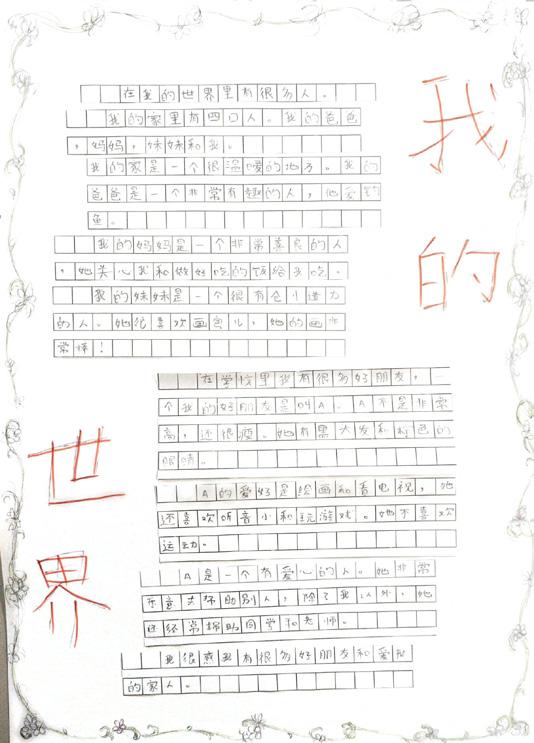 我的
世界
在我的世界里有很多人。
我的家里有四口人。我的爸爸
，妈妈，妹妹和我。
我的家是一个很温暖的地方。我的
爸爸是一个非常有趣的人，他爱钓
鱼。
我的妈妈是一个非常善良的人
，她关心我和做好吃的饭给我吃。
我的妹妹是一个很有创造力
的人。她很喜欢画画儿，她的画非
常棒！
在学校里我有很多好朋友，一
个我的好朋友是叫A。A不是非常
高，还很瘦。她有黑头发和棕色的
眼睛。
A的爱好是绘画和看电视，她
还喜欢听音乐和玩游戏。她不喜欢
运动。
A是一个有爱心的人。她非常
乐意去帮助别人，除了我以外，她
还经常帮助同学和老师。
我很感我有很多好朋友和爱我
的家人。